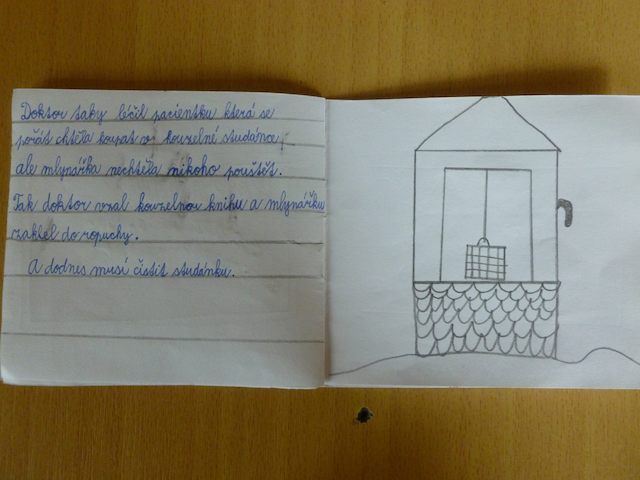 Doktor taky léčil pacientku která se
pořát chtěla koupat v kouzelné studánce,
ale mlynářka nechtěla nikoho pouštět.
Tak doktor vzal kouzelnou knihu a mlynářku
zaklel do ropuchy.
A dodnes musí čistit studánku.